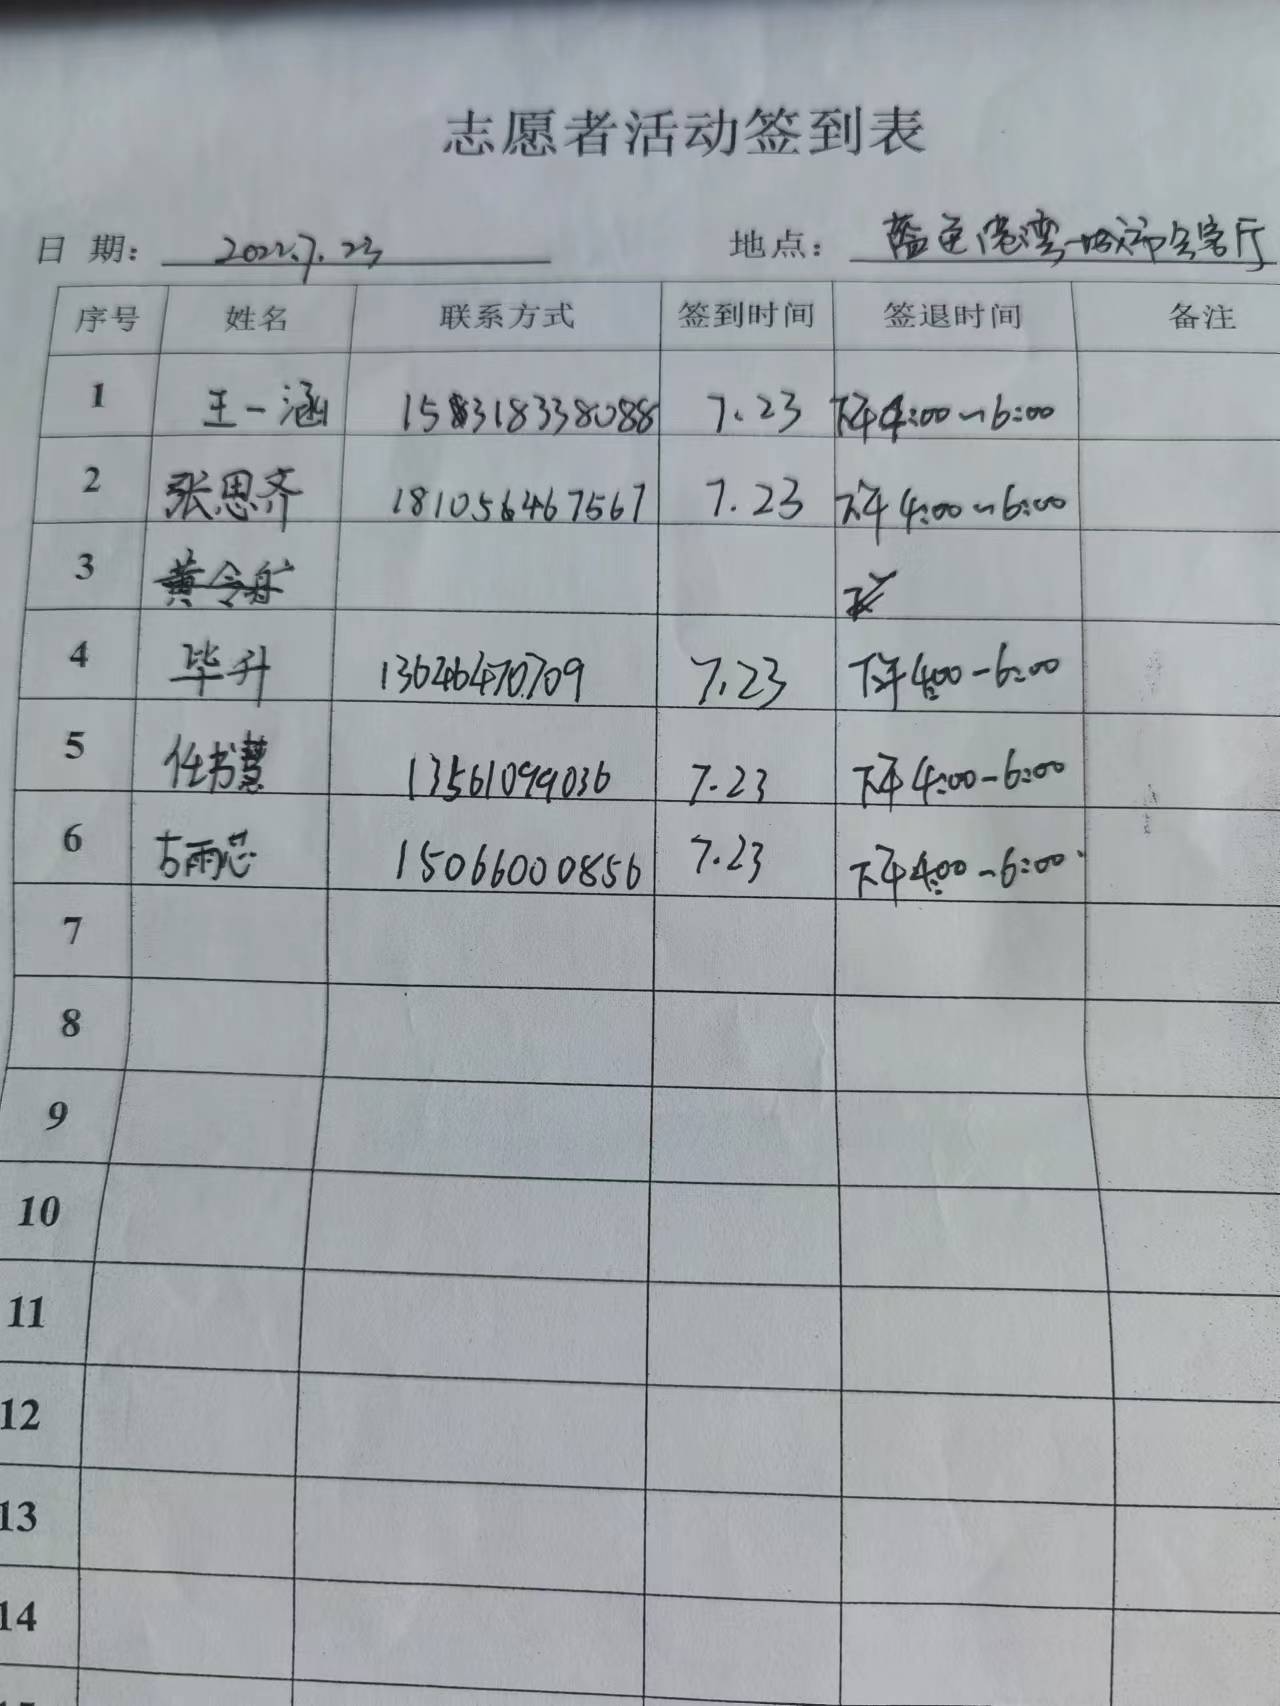 志愿者活动签到表
日 期： 2022.7.23 地点： 蓝色港湾-城市会客厅
序号 姓名 联系方式 签到时间 签退时间 备注
1 王一涵 7.23 下午4:00~6:00
2 张思齐 7.23 下午4:00~6:00
3 黄令航
4 毕升 13646470709 7.23 下午4:00-6:00
5 任书慧 13561099036 7.23 下午4:00-6:00
6 古雨芯 15066000856 7.23 下午4:00~6:00
7
8
9
10
11
12
13
14